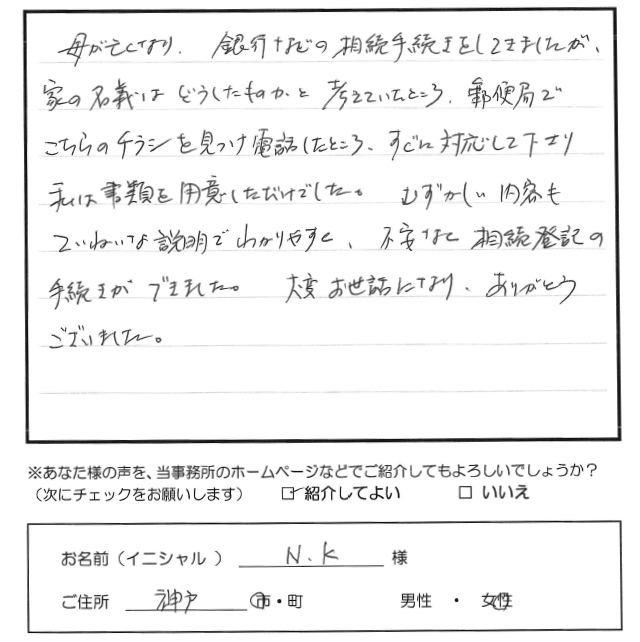 母が亡くなり、銀行などの相続手続きをしてきましたが、
家の名義はどうしたものかと考えていたところ、郵便局で
こちらのチラシを見つけ電話したところ、すぐに対応して下さり
私は書類を用意しただけでした。むずかしい内容も
ていねいな説明でわかりやすく、不安なく相続登記の
手続きができました。大変お世話になり、ありがとう
ございました。
※あなた様の声を、当事務所のホームページなどでご紹介してもよろしいでしょうか?
(次にチェックをお願いします) ☑ 紹介してよい □ いいえ
お名前(イニシャル) N.K 様
ご住所 神戸 市・町 男性 ・ 女性